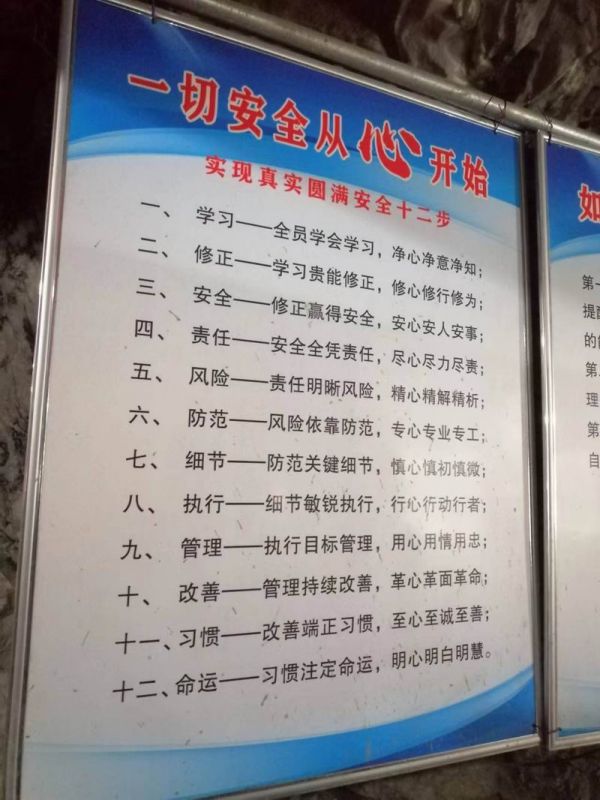 一切安全从心开始
实现真实圆满安全十二步
一、学习——全员学会学习，净心净意净知；
二、修正——学习贵能修正，修心修行修为；
三、安全——修正赢得安全，安心安人安事；
四、责任——安全全凭责任，尽心尽力尽责；
五、风险——责任明晰风险，精心精解精析；
六、防范——风险依靠防范，专心专业专工；
七、细节——防范关键细节，慎心慎初慎微；
八、执行——细节敏锐执行，行心行动行者；
九、管理——执行目标管理，用心用情用忠；
十、改善——管理持续改善，革心革面革命；
十一、习惯——改善端正习惯，至心至诚至善；
十二、命运——习惯注定命运，明心明白明慧。
如
第一
提醒
的能
第
理
第
自